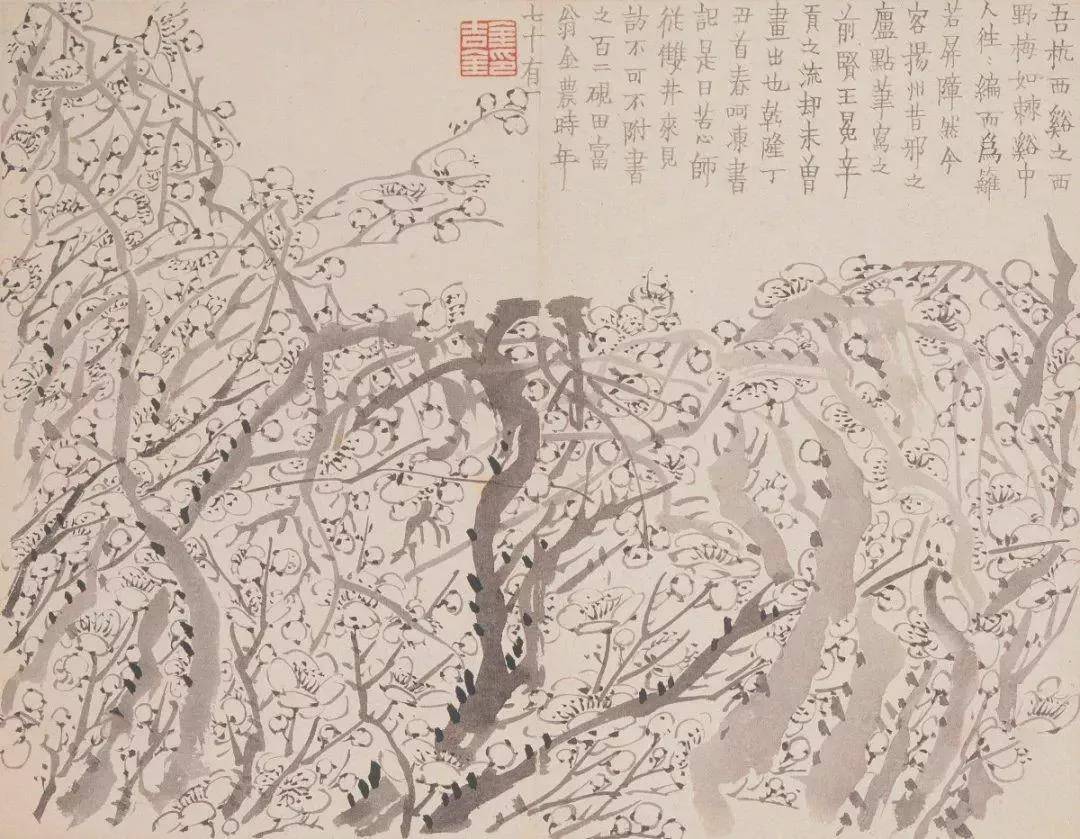 吾杭西谿之西
野梅如棘谿中
人往〻編而爲籬
若屏障然今
客揚州昔邪之
廬點筆寫之
前賢王冕辛
貢之流却未曾
畫出也乾隆丁
丑首春呵凍書
記是日苦心師
從雙井來見
訪不可不附書
之百二硯田富
翁金農時年
七十有一
金印吉金